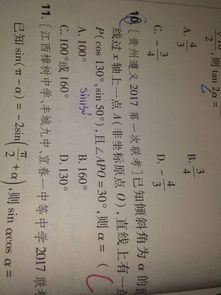 2, 则 tan 2α =
A. 4/3 B. 3/4
C. -3/4 D. -4/3
10. [贵州遵义 2017 第一次联考] 已知倾斜角为 α 的
线过 x 轴上一点 A (非坐标原点 O), 直线上有一
P(cos 130°, sin 50°), 且∠APO=30°, 则 α= (
sin130°
A. 100° B. 160°
C. 100°或160° D. 130°
11. [江西樟树中学、丰城九中、宜春一中等中学 2017 联
已知 sin(π-α) = -2sin(π/2+α), 则 sin αcos α =